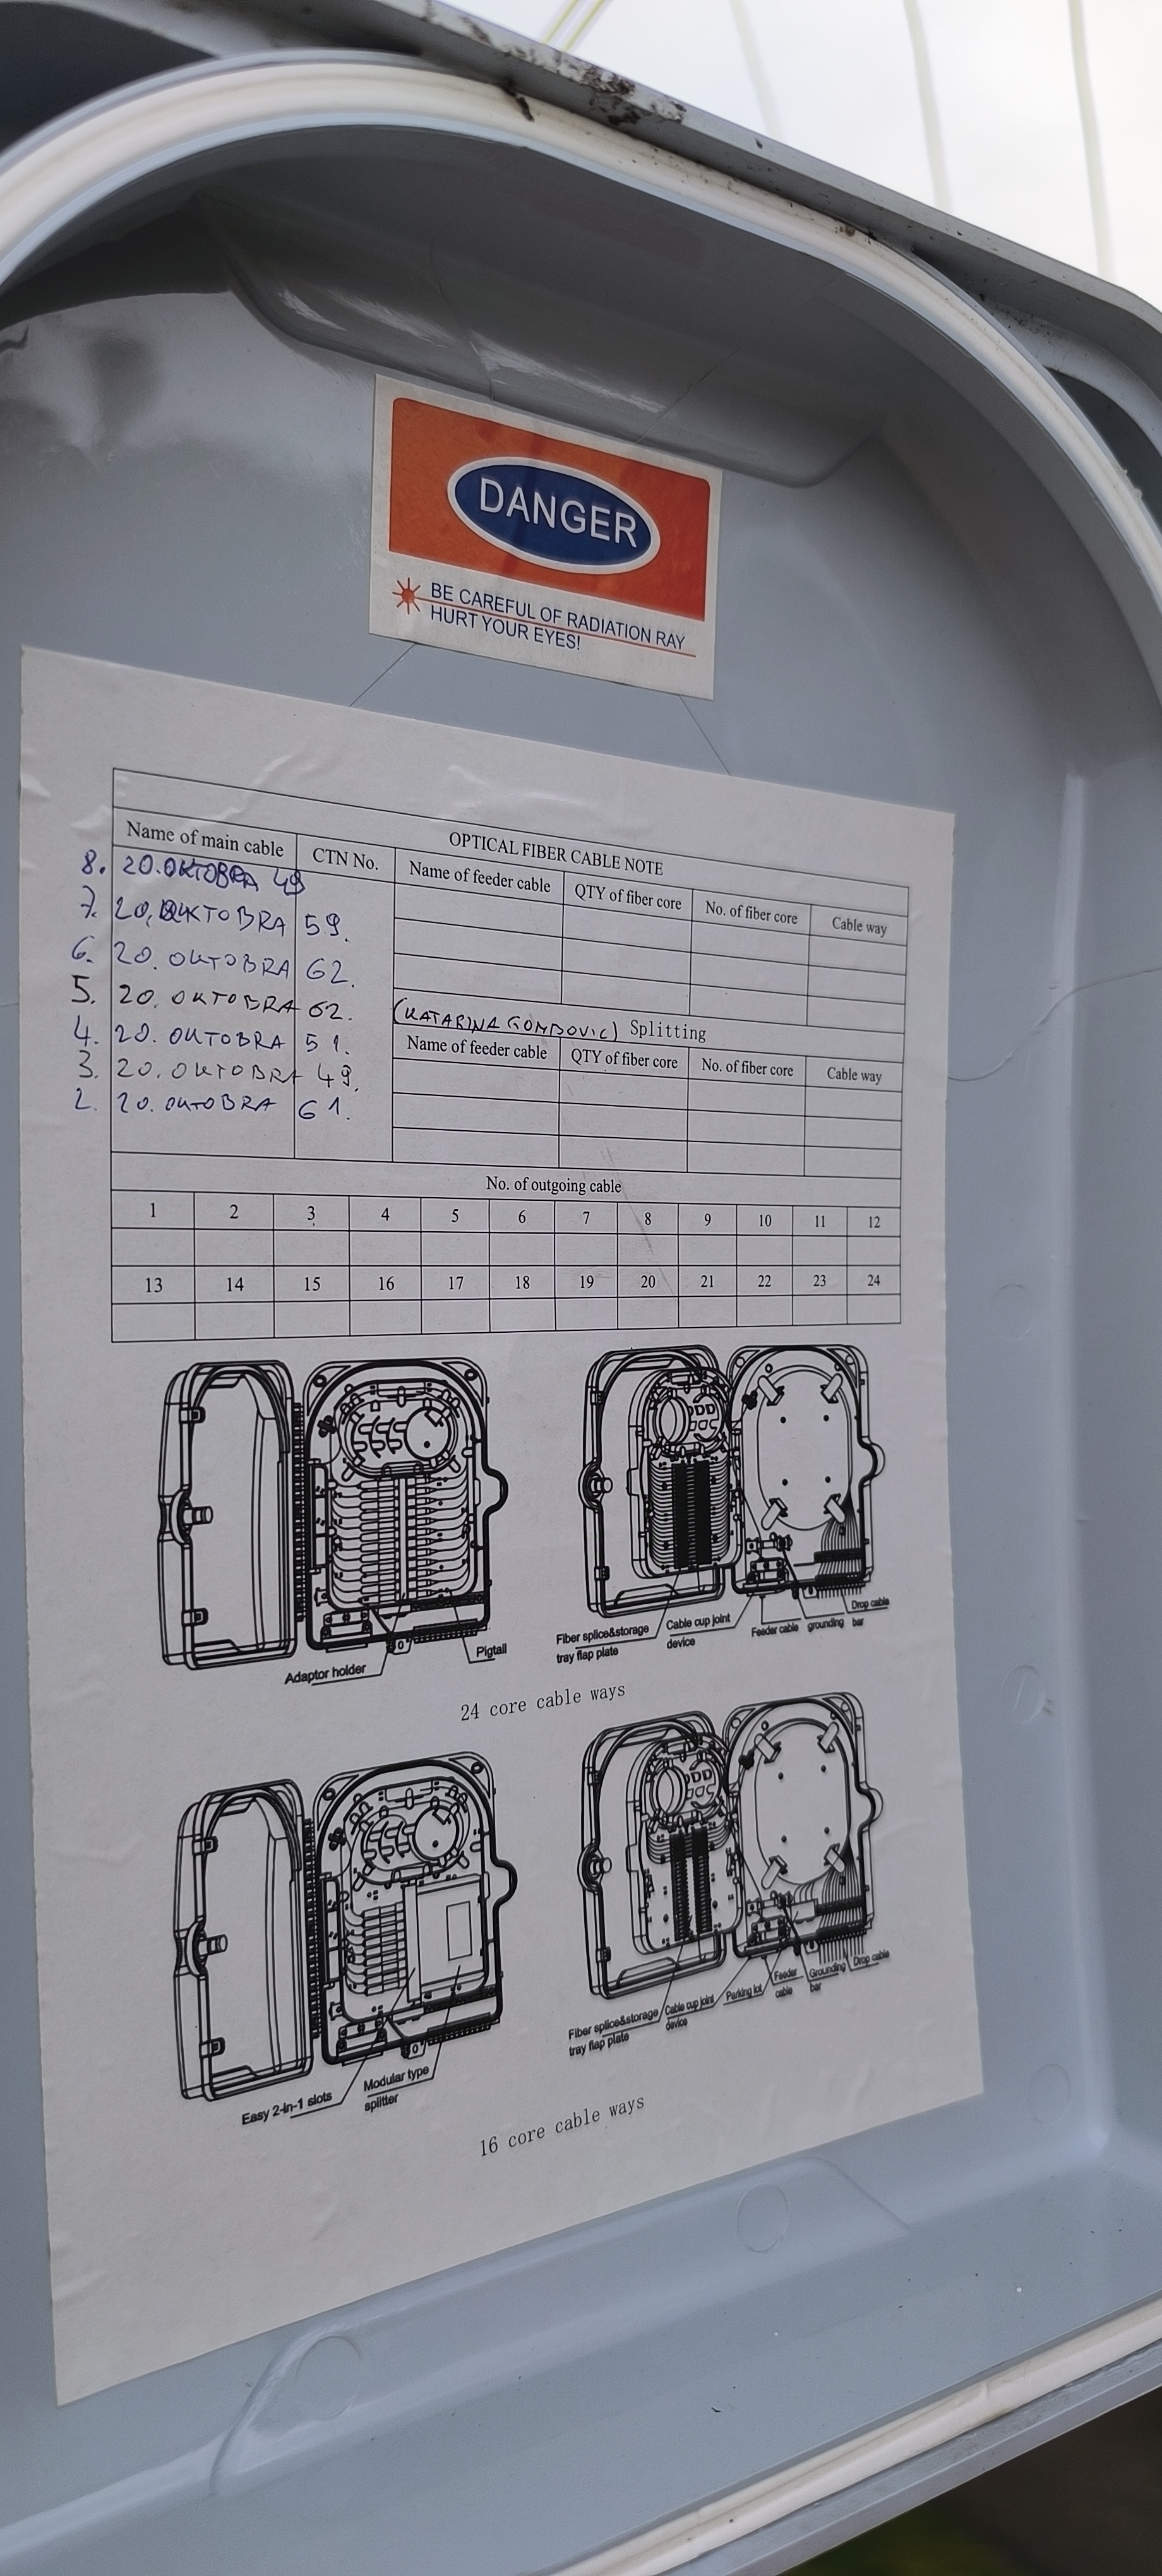 DANGER
BE CAREFUL OF RADIATION RAY
HURT YOUR EYES!
OPTICAL FIBER CABLE NOTE
Name of main cable CTN No. Name of feeder cable QTY of fiber core No. of fiber core Cable way
8. 20. OKTOBRA 49
7. 20. OKTOBRA 59.
6. 20. OKTOBRA 62.
5. 20. OKTOBRA 62. (KATARINA GOMBOVIC) Splitting
4. 20. OKTOBRA 51. Name of feeder cable QTY of fiber core No. of fiber core Cable way
3. 20. OKTOBRA 49.
2. 20. OKTOBRA 61.
No. of outgoing cable
1 2 3 4 5 6 7 8 9 10 11 12
13 14 15 16 17 18 19 20 21 22 23 24
Adaptor holder
Pigtail
Fiber splice&storage
tray flap plate
Cable cup joint
device
Feeder cable
grounding
bar
Drop cable
24 core cable ways
Easy 2-in-1 slots
Modular type
splitter
Fiber splice&storage
tray flap plate
Cable cup joint
device
Parking lot
Feeder
cable
Grounding
bar
Drop cable
16 core cable ways